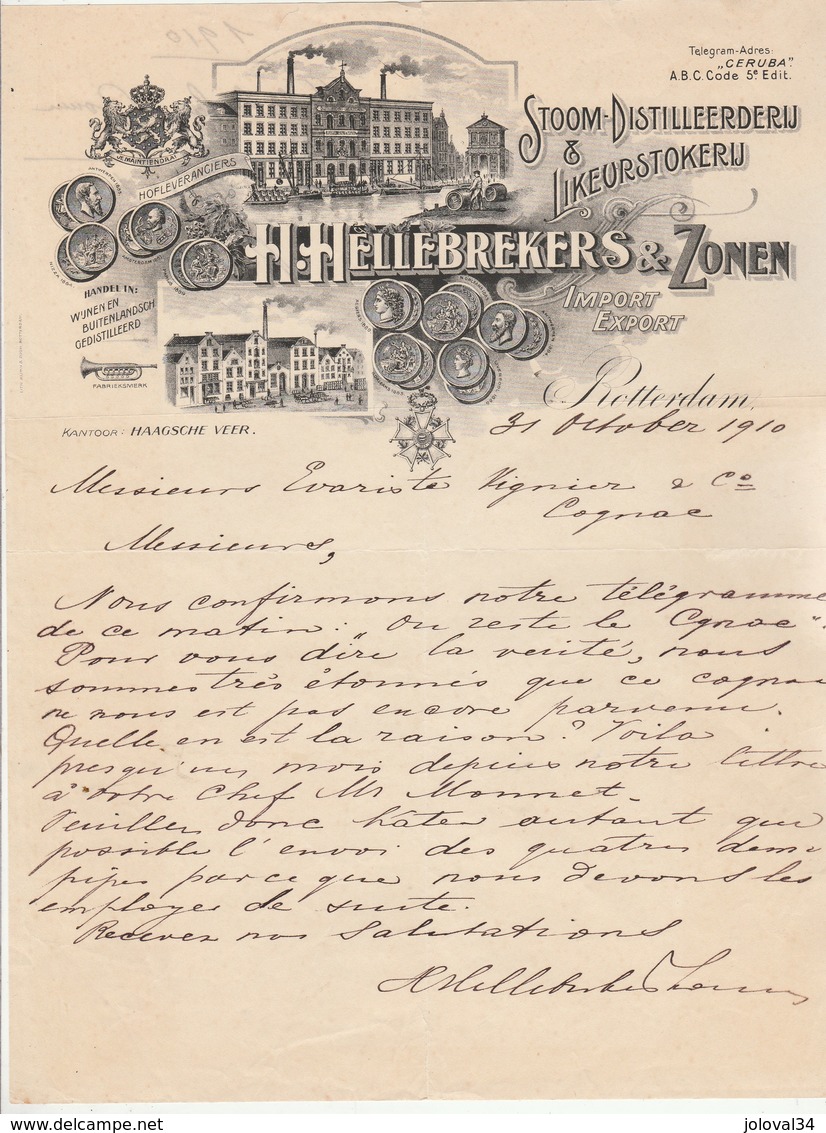 1910
Telegram-Adres:
„CERUBA”.
A.B.C. Code 5e Edit.
STOOM-DISTILLEERDERIJ
&
LIKEURSTOKERIJ
JE MAINTIENDRAI
HOFLEVERANCIERS
H. HELLEBREKERS & ZONEN
IMPORT
EXPORT
HANDEL IN:
WIJNEN EN
BUITENLANDSCH
GEDISTILLEERD
FABRIEKSMERK
KANTOOR: HAAGSCHE VEER.
Rotterdam,
31 October 1910
Messieurs Evariste Vignier & Co
Cognac
Messieurs,
Nous confirmons notre télégramme
de ce matin: „Ou reste le Cgnac”.
Pour vous dire la verité, nous
sommes très étonnés que ce cognac
ne nous est pas encore parvenu.
Quelle en est la raison? Voila
presqu'un mois depuis notre lettre
à votre Chef Mr Monnet.
Veuillez donc hâter autant que
possible l'envoi des quatres demi
pipes parce que nous devons les
employer de suite.
Recevez nos salutations
H Hellebrekers & Zonen
delcampe.net
joloval34